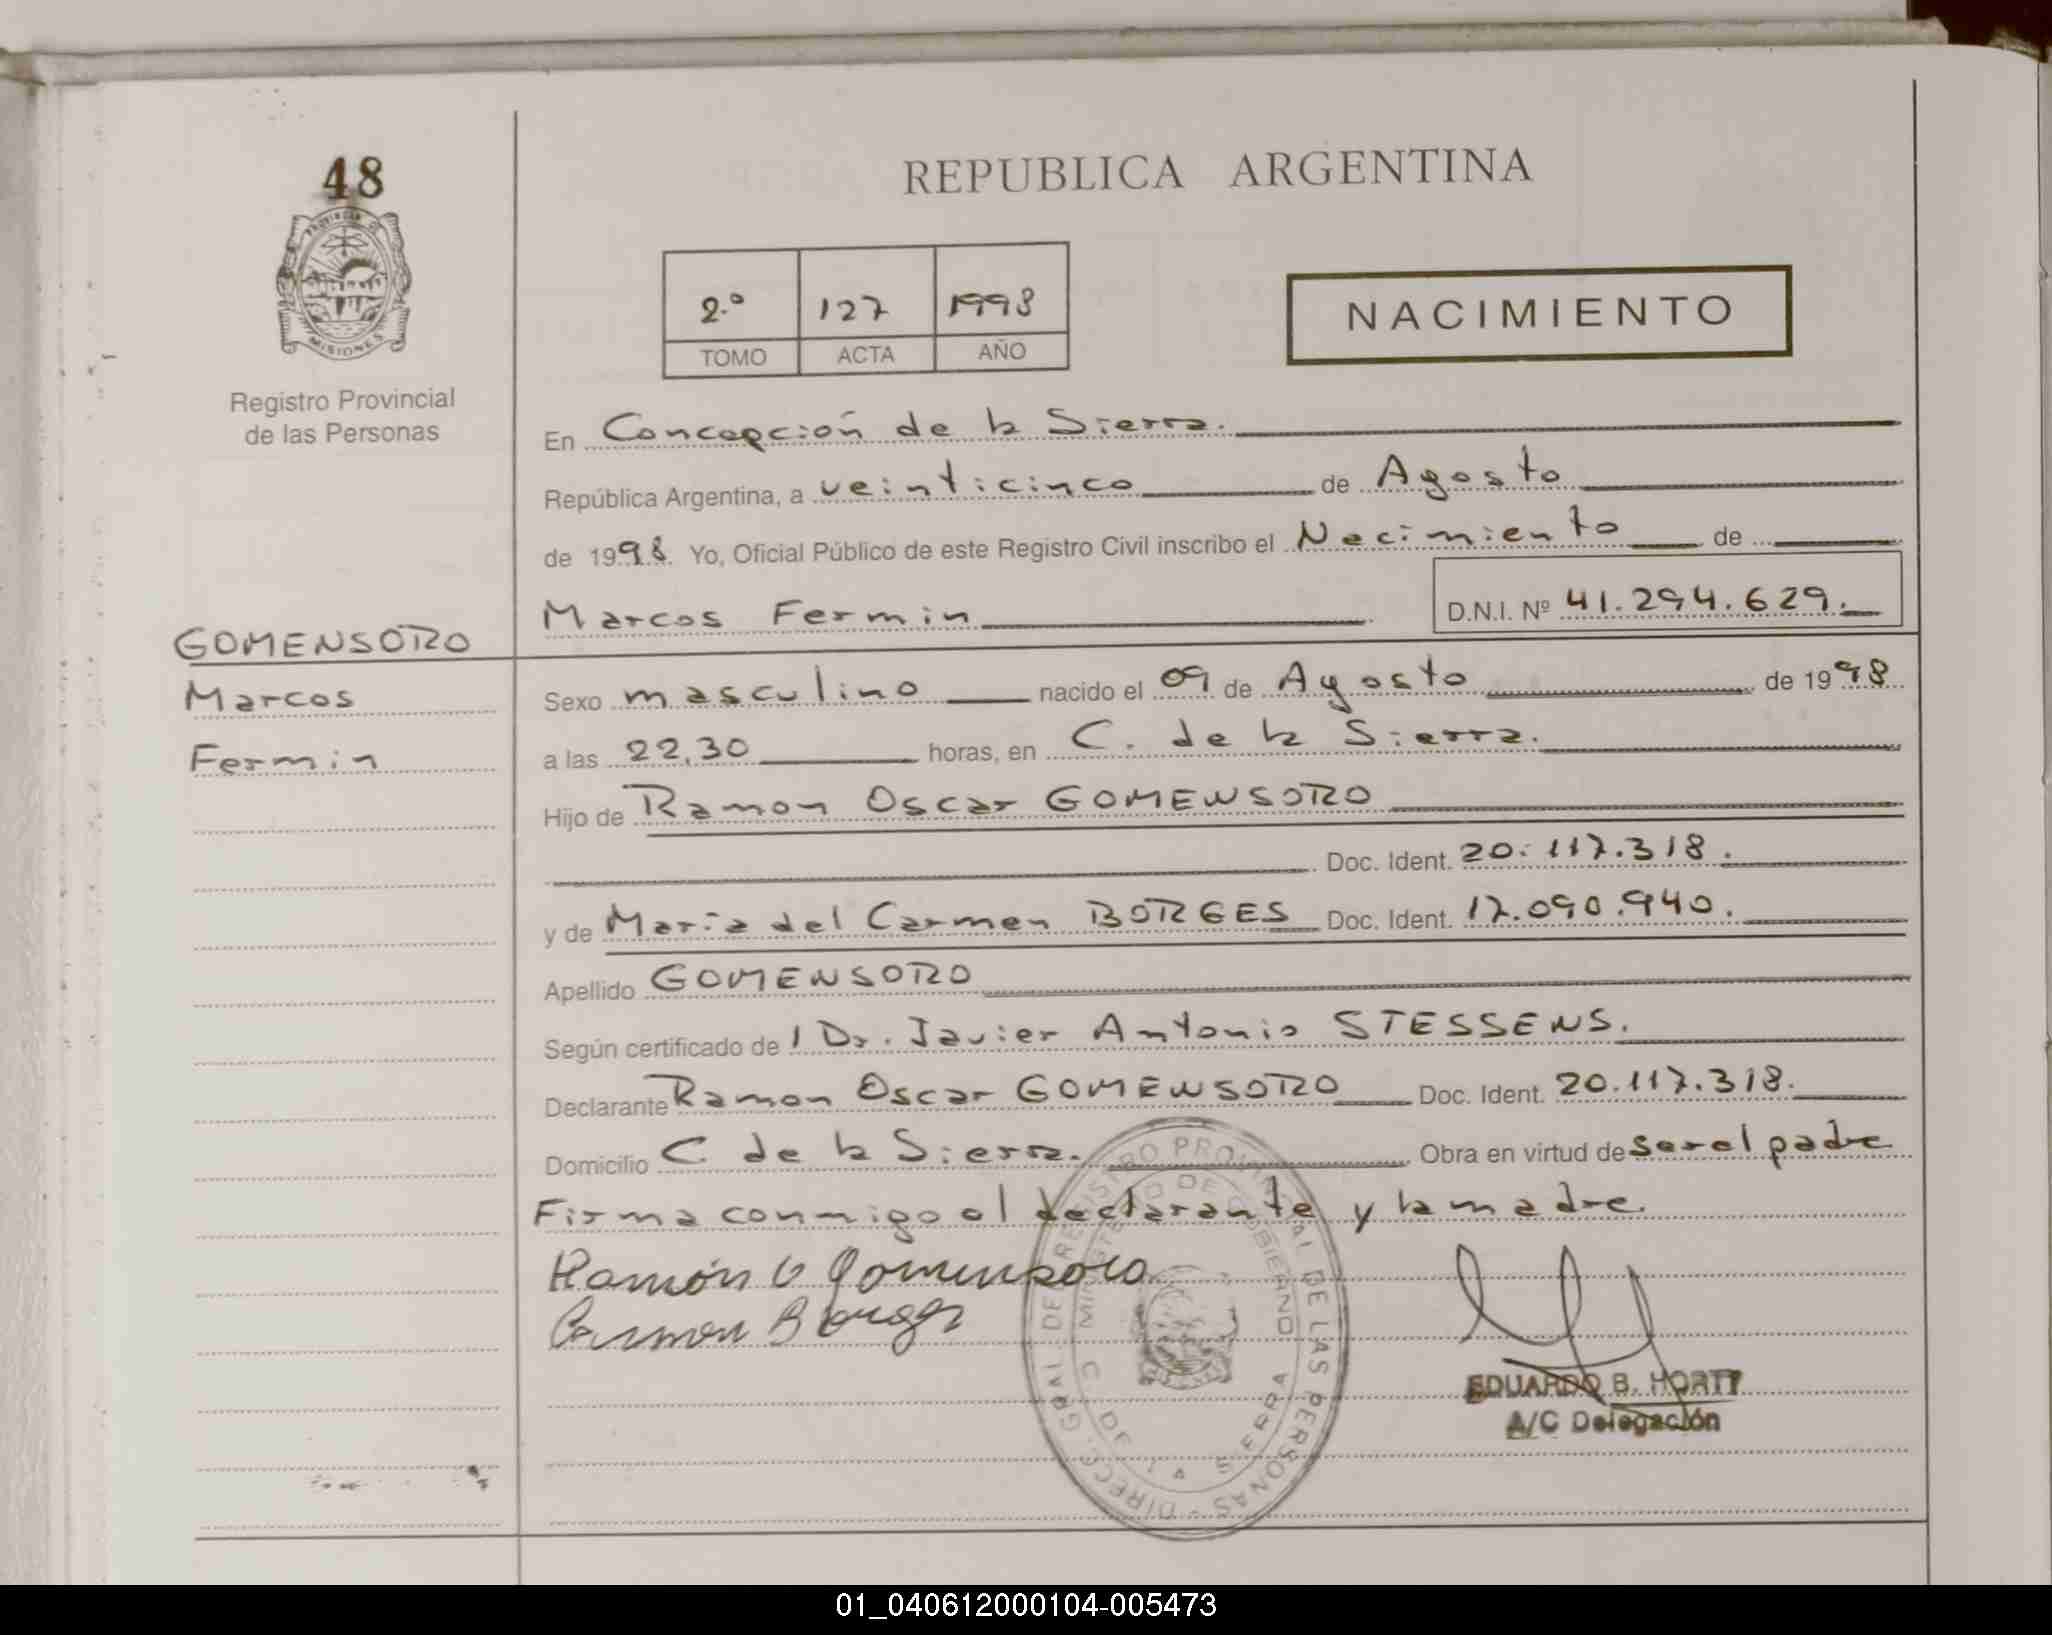 48
PROVINCIA DE
MISIONES
Registro Provincial
de las Personas
GOMENSORO
Marcos
Fermin
REPUBLICA ARGENTINA
2.º 127 1998
TOMO ACTA AÑO
NACIMIENTO
En Concepción de la Sierra.
República Argentina, a veinticinco de Agosto
de 1998. Yo, Oficial Público de este Registro Civil inscribo el Nacimiento de
Marcos Fermin D.N.I. Nº 41.294.629.
Sexo masculino nacido el 09 de Agosto de 1998
a las 22,30 horas, en C. de la Sierra.
Hijo de Ramon Oscar GOMENSORO
Doc. Ident. 20.117.318.
y de María del Carmen BORGES Doc. Ident. 17.090.940.
Apellido GOMENSORO
Según certificado del Dr. Javier Antonio STESSENS.
Declarante Ramon Oscar GOMENSORO Doc. Ident. 20.117.318.
Domicilio C. de la Sierra. Obra en virtud de ser el padre
Firma conmigo el declarante y la madre.
Ramón O Gomensoro
Carmen Borges
DIREC. GRAL. DEL REGISTRO PROVINCIAL DE LAS PERSONAS -
MINISTERIO DE GOBIERNO
C DE LA SIERRA
EDUARDO B. HORTT
A/C Delegación
01_040612000104-005473